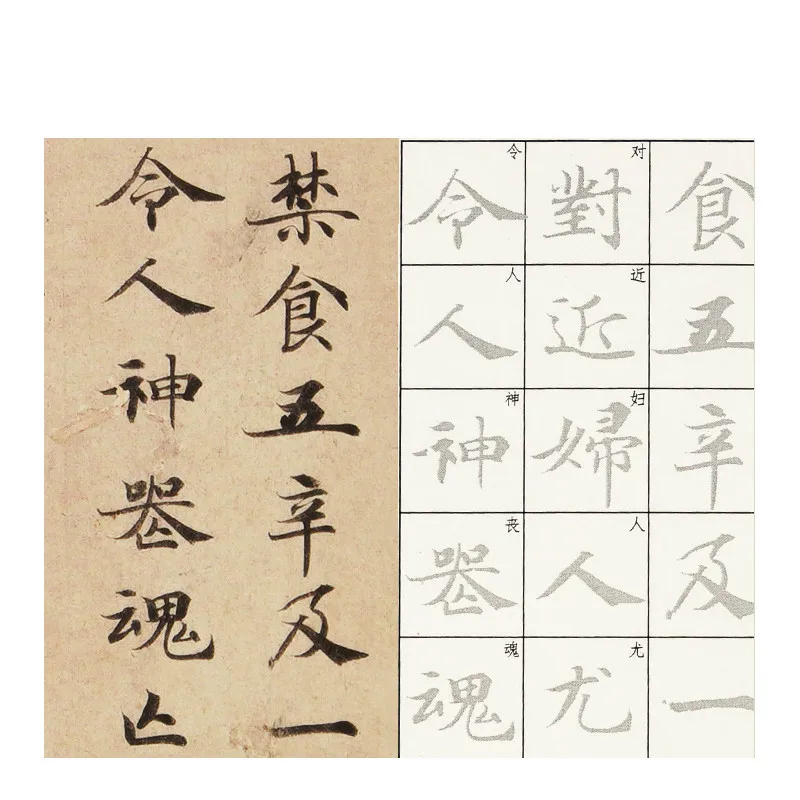 禁食五辛及一
令人神喪魂亡
食五辛及一
對近婦人尤
对近妇人尤
令人神喪魂
令人神丧魂